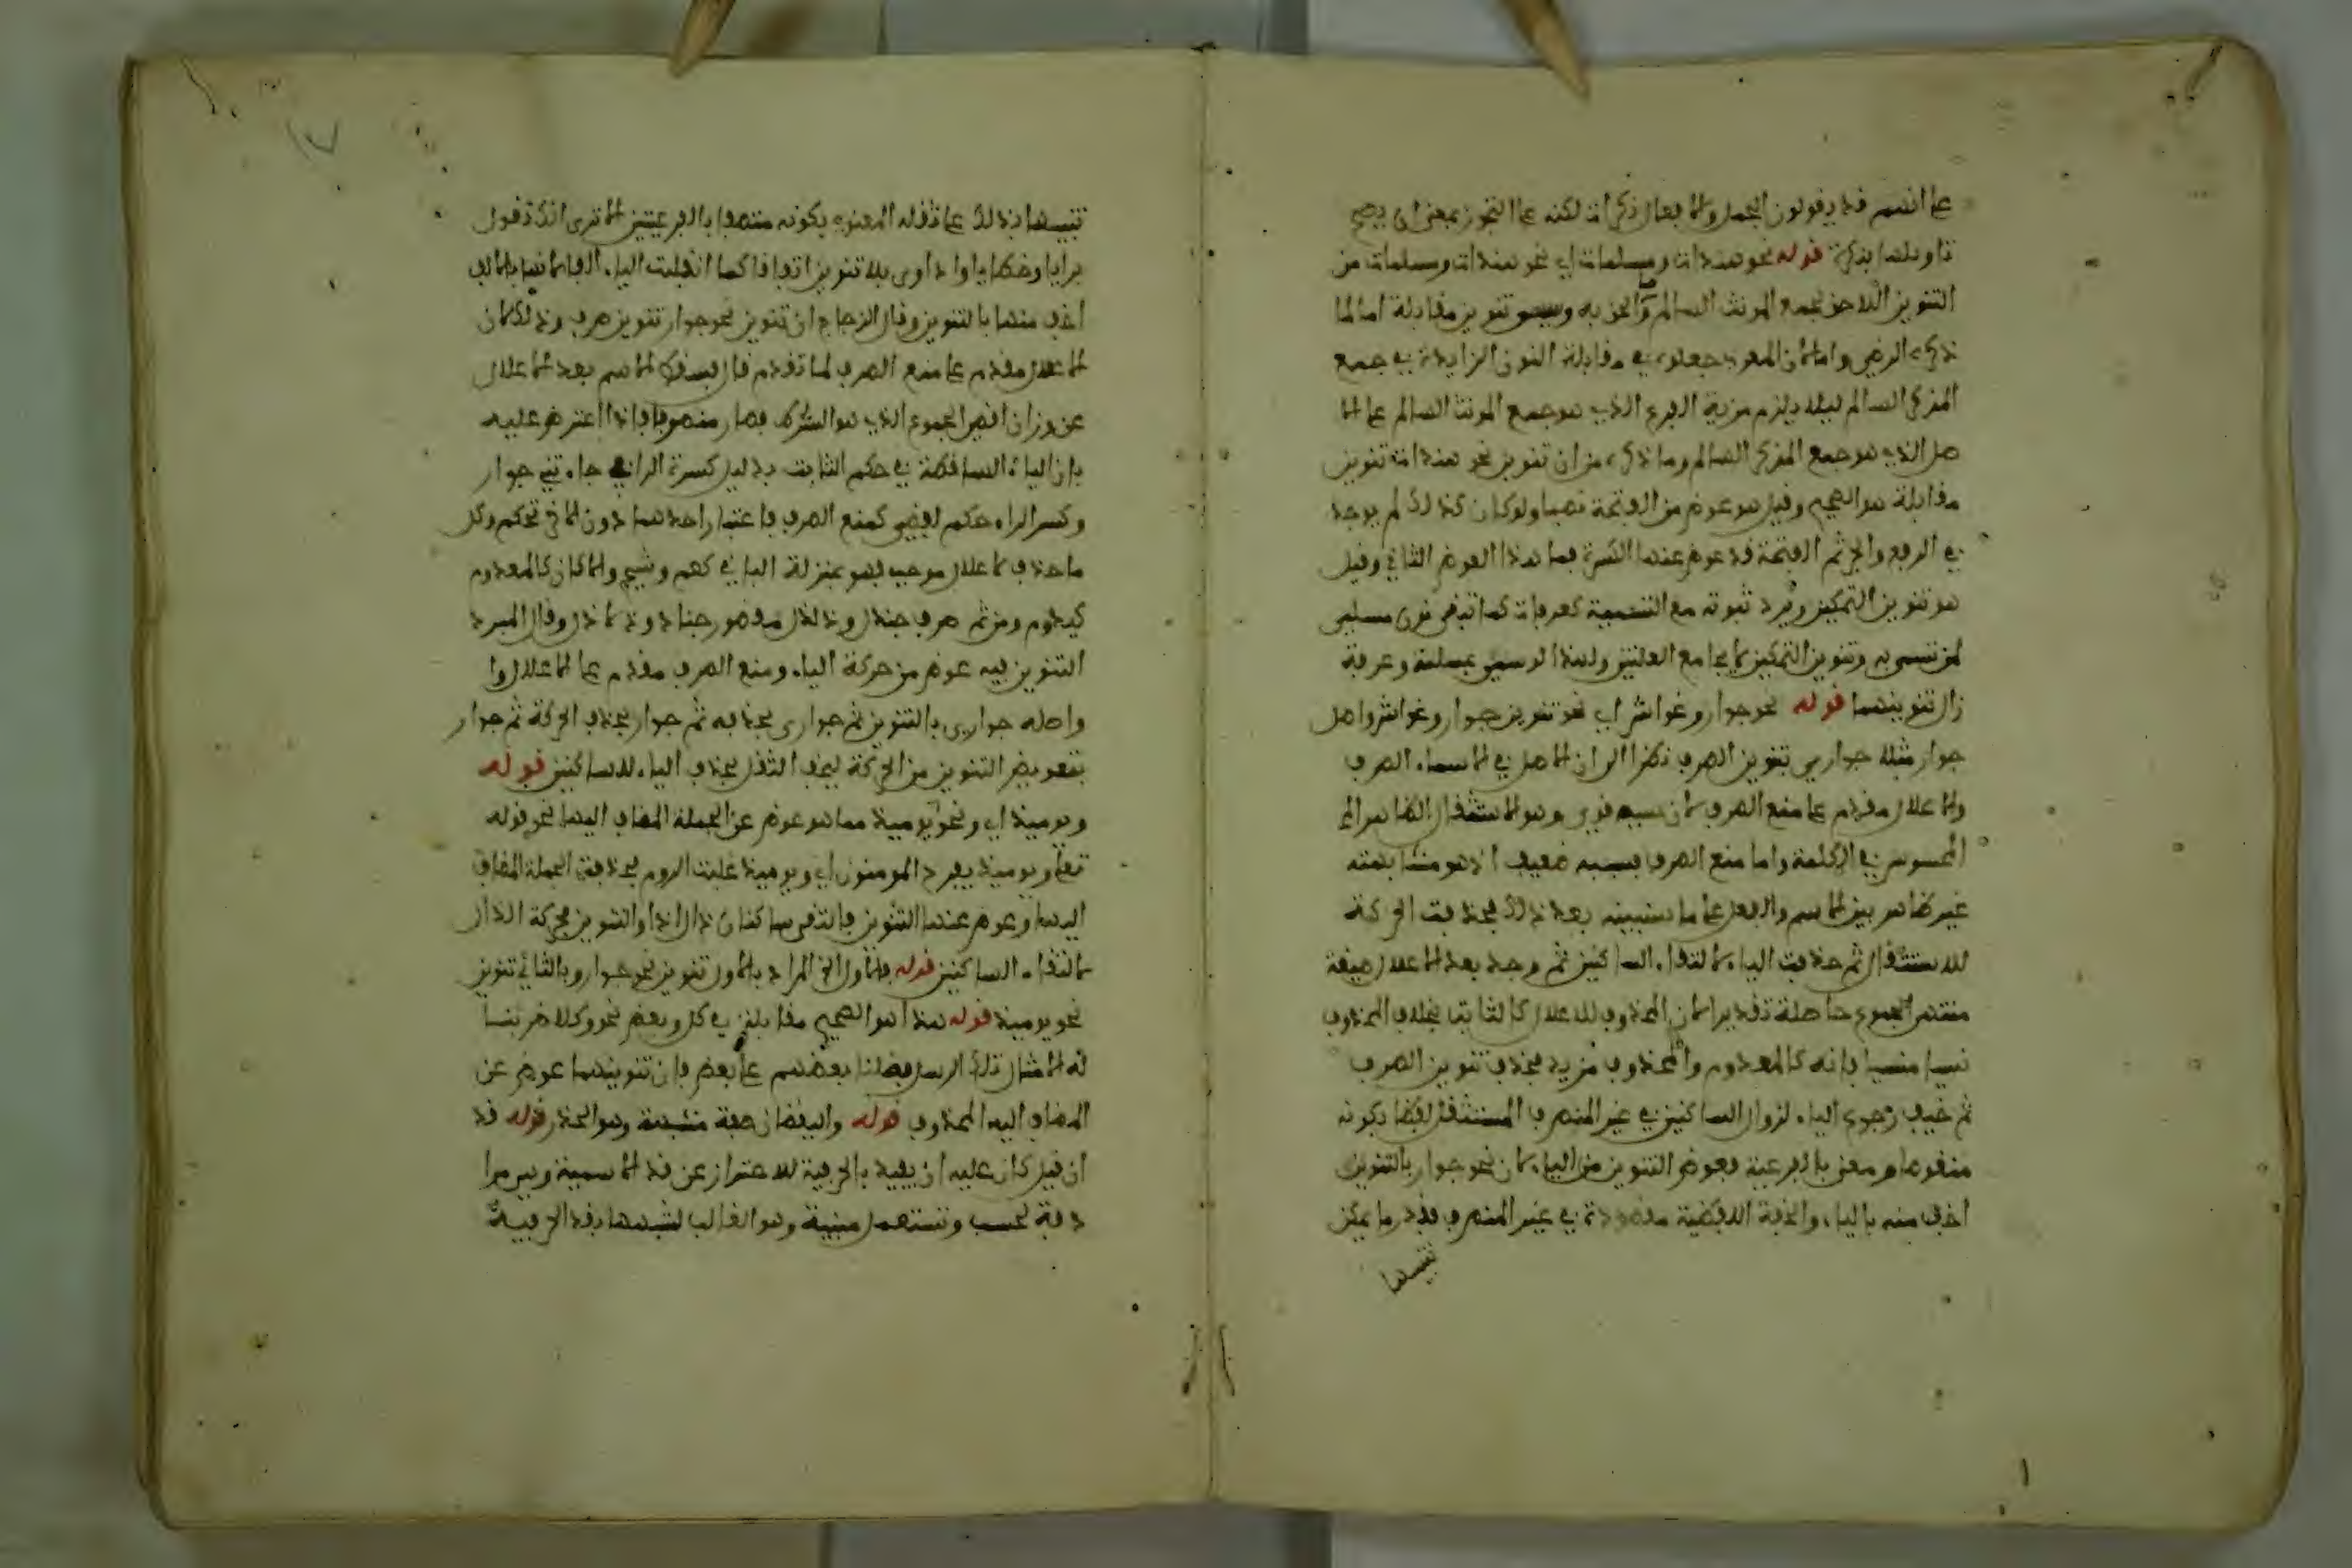 على انهم قد يقولون الجمل والافعال نكرات لكنه على التجوز بمعنى ان يصح
تاويلها بنكرة قوله نحو هندات ومسلمات اي نحو هندات ومسلمات من
التنوين اللاحق لجمع المونث السالم وما الحق به وسمى تنوين مقابلة اما لما
ذكره الرضي واما لان العرب جعلوه في مقابلة النون الزايدة في جمع
المذكر السالم ليلا يلزم مزية الفرع الذي هو جمع المونث السالم على الا
صل الذي هو جمع المذكر السالم وما ذكره من ان تنوين نحو هندات تنوين
مقابلة هو الصحيح وقيل هو عوض من الفتحة نصبا ولو كان كذلك لم يوجد
في الرفع والجر ثم الفتحة قد عوض عنها الكسرة فما هذا العوض الثاني وقيل
هو تنوين التمكين ويرد ثبوته مع التسمية كعرفات كما تبقى نون مسلمين
لمن تسمى به وتنوين التمكين لا يجامع العلتين ولهذا لو سمي بمسلمة وعرفة
زال تنوينهما قوله نحو جوار وغواش اي نحو تنوين جوار وغواش واصل
جوار مثلا جواري بتنوين الصرف نظرا الى ان الاصل في الاسماء الصرف
والاعلال مقدم على منع الصرف لان سببه قوي وهو الاستثقال الظاهر الم
المحسوس في الكلمة واما منع الصرف فسببه ضعيف اذ هو مشابهته
غير ظاهر بين الاسم والفعل على ما سنبينه بعد ذلك فحذفت الحركة
للاستثقال ثم حذفت الياء لالتقاء الساكنين ثم وجد بعد الاعلال صيغة
منتهى الجموع حاصلة تقديرا لان المحذوف للاعلال كالثابت بخلاف المحذوف
نسيا منسيا فانه كالمعدوم والمحذوف مزيد فحذف تنوين الصرف
ثم خيف رجوع الياء لزوال الساكنين في غير المنصرف المستثقل لفظا بكونه
منقوصا ومعنى بالفرعية فعوض التنوين من الياء لان نحو جوار بالتنوين
اخف منه بالياء والخفة اللفظية مقصودة في غير المنصرف بقدر ما يمكن
تنبيها
تنبيها بذلك على ثقله المعنوي بكونه متصفا بالفرعيتين الا ترى انك تقول
برايا وخطايا واداوى بلا تنوين اتفاقا كما انقلبت الياء الفا لانها بالالف
اخف منها بالتنوين وقال الزجاج ان تنوين نحو جوار تنوين صرف وذلك لان
الاعلال مقدم على منع الصرف لما تقدم قال فسقط الاسم بعد الاعلال
عن وزان اقصى الجموع الذي هو الشرط فصار منصرفا فاذا اعترض عليه
بان الياء الساقطة في حكم الثابت بدليل كسرة الراء في جاءتني جوار
وكسر الراء حكم لفظي كمنع الصرف فاعتبار احدهما دون الاخر تحكم وكل
ما حذف لاعلال موجب فهو بمنزلة الباقي كعم وشج والا كان كالمعدوم
كيد ودم ومن ثم صرف جندل وذلذل مقصور جنادل وذلاذل وقال المبرد
التنوين فيه عوض من حركة الياء ومنع الصرف مقدم على الاعلال وا
واصله جواري بالتنوين ثم جواري بحذفه ثم جوار بحذف الحركة ثم جوار
بتعويض التنوين من الحركة ليخف الثقل بحذف الياء للساكنين قوله
ويوميذ اي ونحو يوميذ مما هو عوض عن الجملة المضاف اليها نحو قوله
تعلى ويوميذ يفرح المومنون اي ويوميذ غلبت الروم فحذفت الجملة المضاف
اليها وعوض عنها التنوين فالتقى ساكنان ذال اذ والتنوين فحركة الذال
لالتقاء الساكنين قوله فالاول الخ المراد بالاول تنوين نحو جوار وبالثاني تنوين
نحو يوميذ قوله هذا هو الصحيح مقابله في كل وبعض نحو وكلا ضربنا
له الامثال تلك الرسل فضلنا بعضهم على بعض فان تنوينهما عوض عن
المضاف اليه المحذوف قوله واليقظان صفة مشبهة وهو الحذر قوله قد
ان قيل كان عليه ان يقيد بالحرفية للاحتراز عن قد الاسمية وهي مرا
دفة لحسب وتستعمل مبنية وهو الغالب لشبهها بقد الحرفية